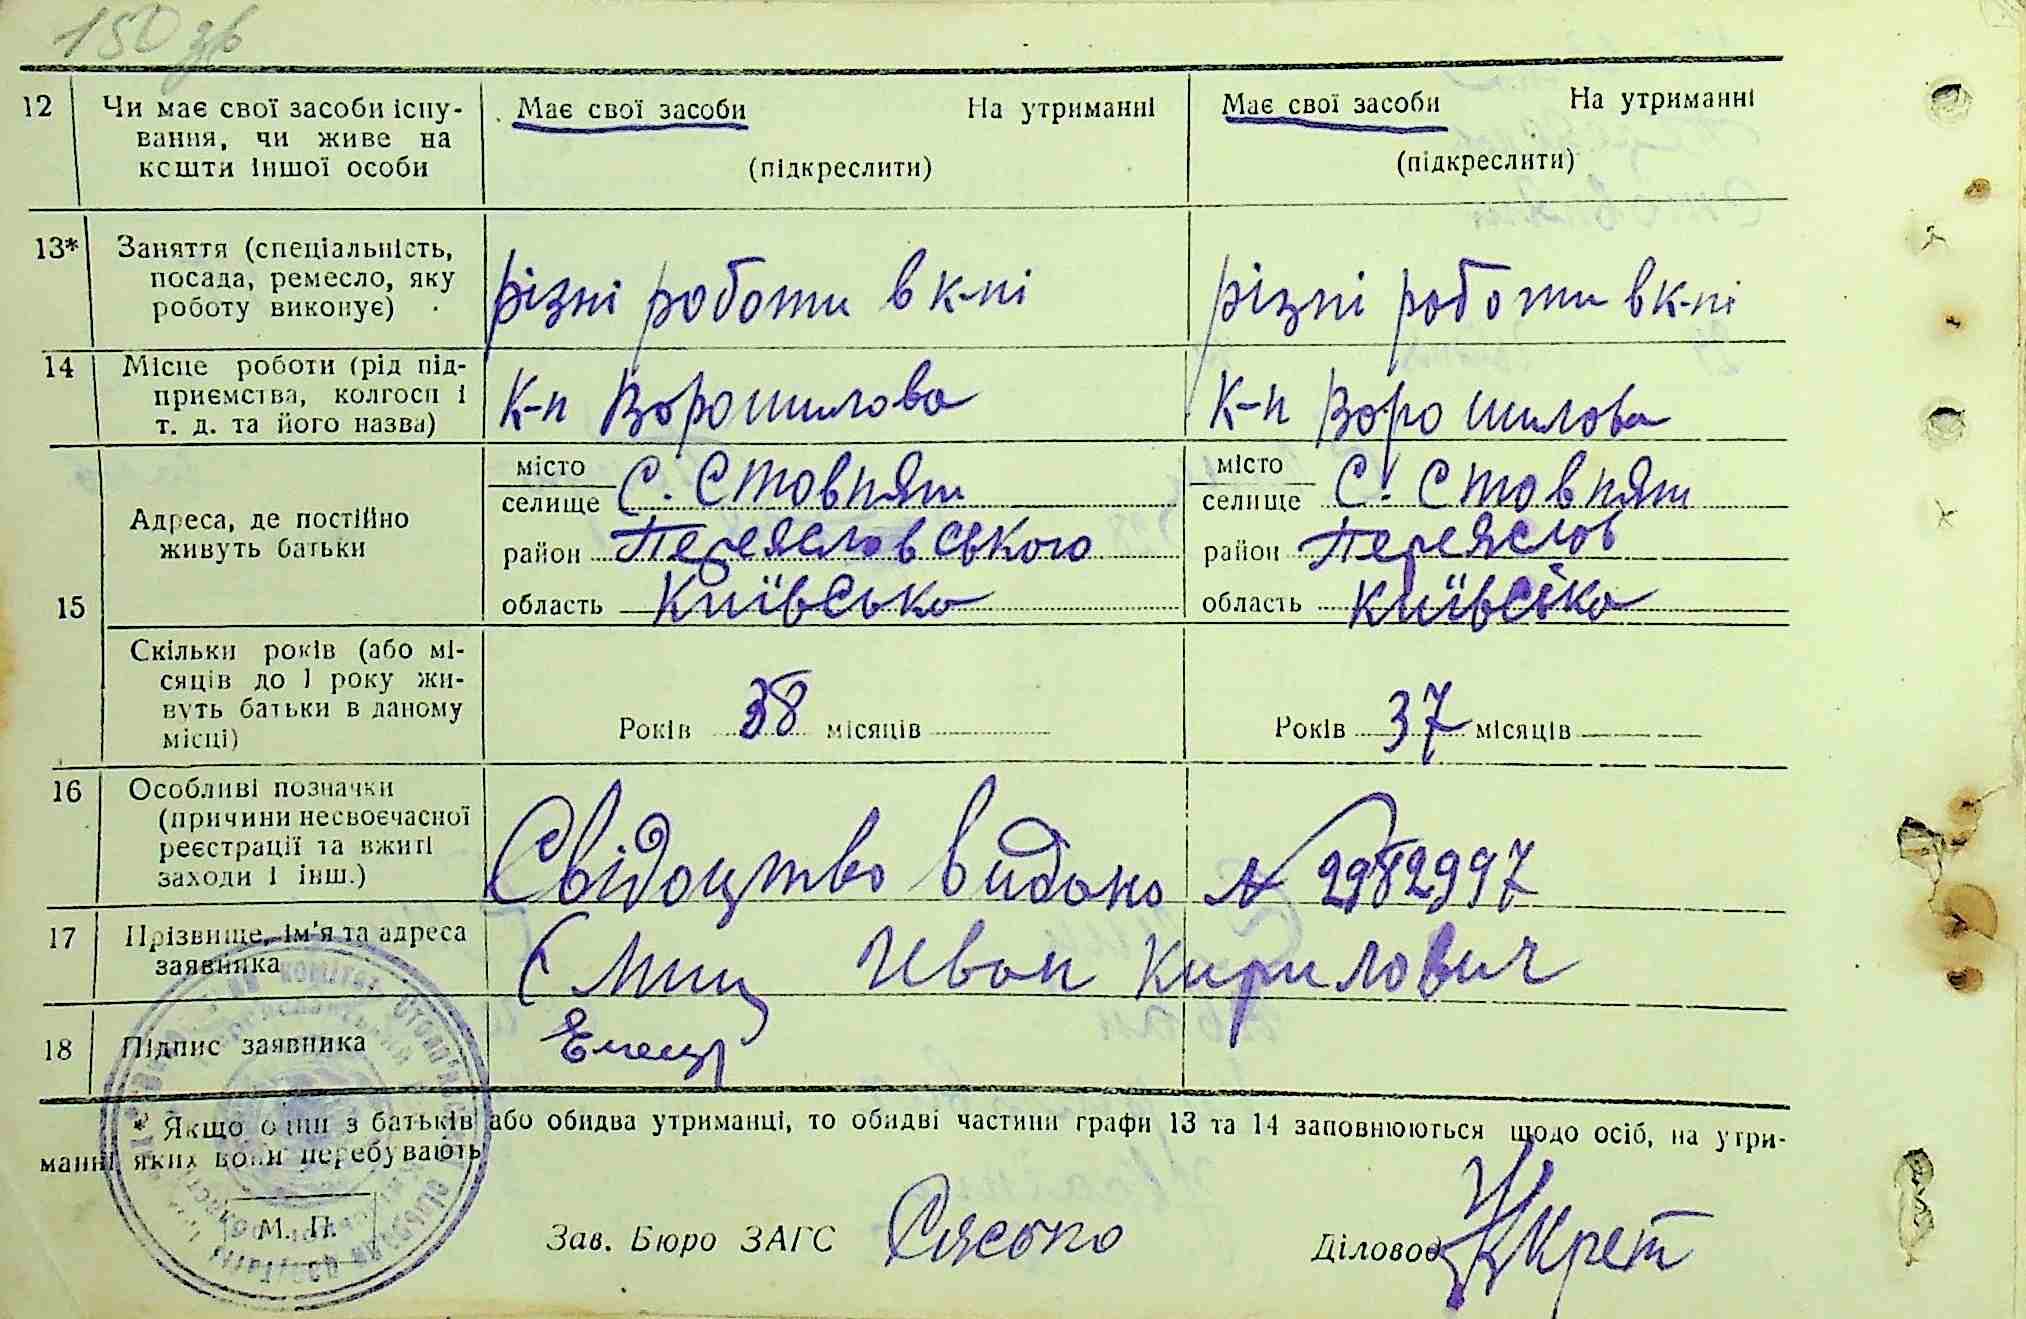 150 зв
12 Чи має свої засоби існу- Має свої засоби На утриманні Має свої засоби На утриманні
вання, чи живе на
кошти іншої особи (підкреслити) (підкреслити)
13* Заняття (спеціальність,
посада, ремесло, яку різні роботи в к-пі різні роботи в к-пі
роботу виконує)
14 Місце роботи (рід під-
приємства, колгосп і К-п Ворошилова К-п Ворошилова
т. д. та його назва)
місто місто
селище С. Стовпяги селище С. Стовпяги
15 Адреса, де постійно
живуть батьки район Переясловського район Переяслов
область Київсько область Київсько
Скільки років (або мі-
сяців до 1 року жи-
вуть батьки в даному Років 38 місяців Років 37 місяців
місці)
16 Особливі позначки
(причини несвоєчасної
реєстрації та вжиті Свідоцтво видано № 2982997
заходи і інш.)
17 Прізвище, ім'я та адреса
заявника Иван Кирилович
18 Підпис заявника Емец
* Якщо один з батьків або обидва утриманці, то обидві частини графи 13 та 14 заповнюються щодо осіб, на утри-
манні яких вони перебувають
М. П. Зав. Бюро ЗАГС Діловод Крет